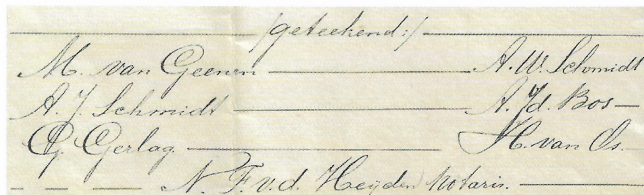 /geteekend:/
M. van Geenen A. W. Schmidt
A. J. Schmidt A. Jd. Bos
G. Gerlag H. van Os.
N. F. v. d. Heijden notaris.